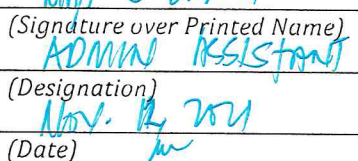 (Signature over Printed Name)
ADMIN ASSISTANT
(Designation)
NOV. 12, 2021
(Date)